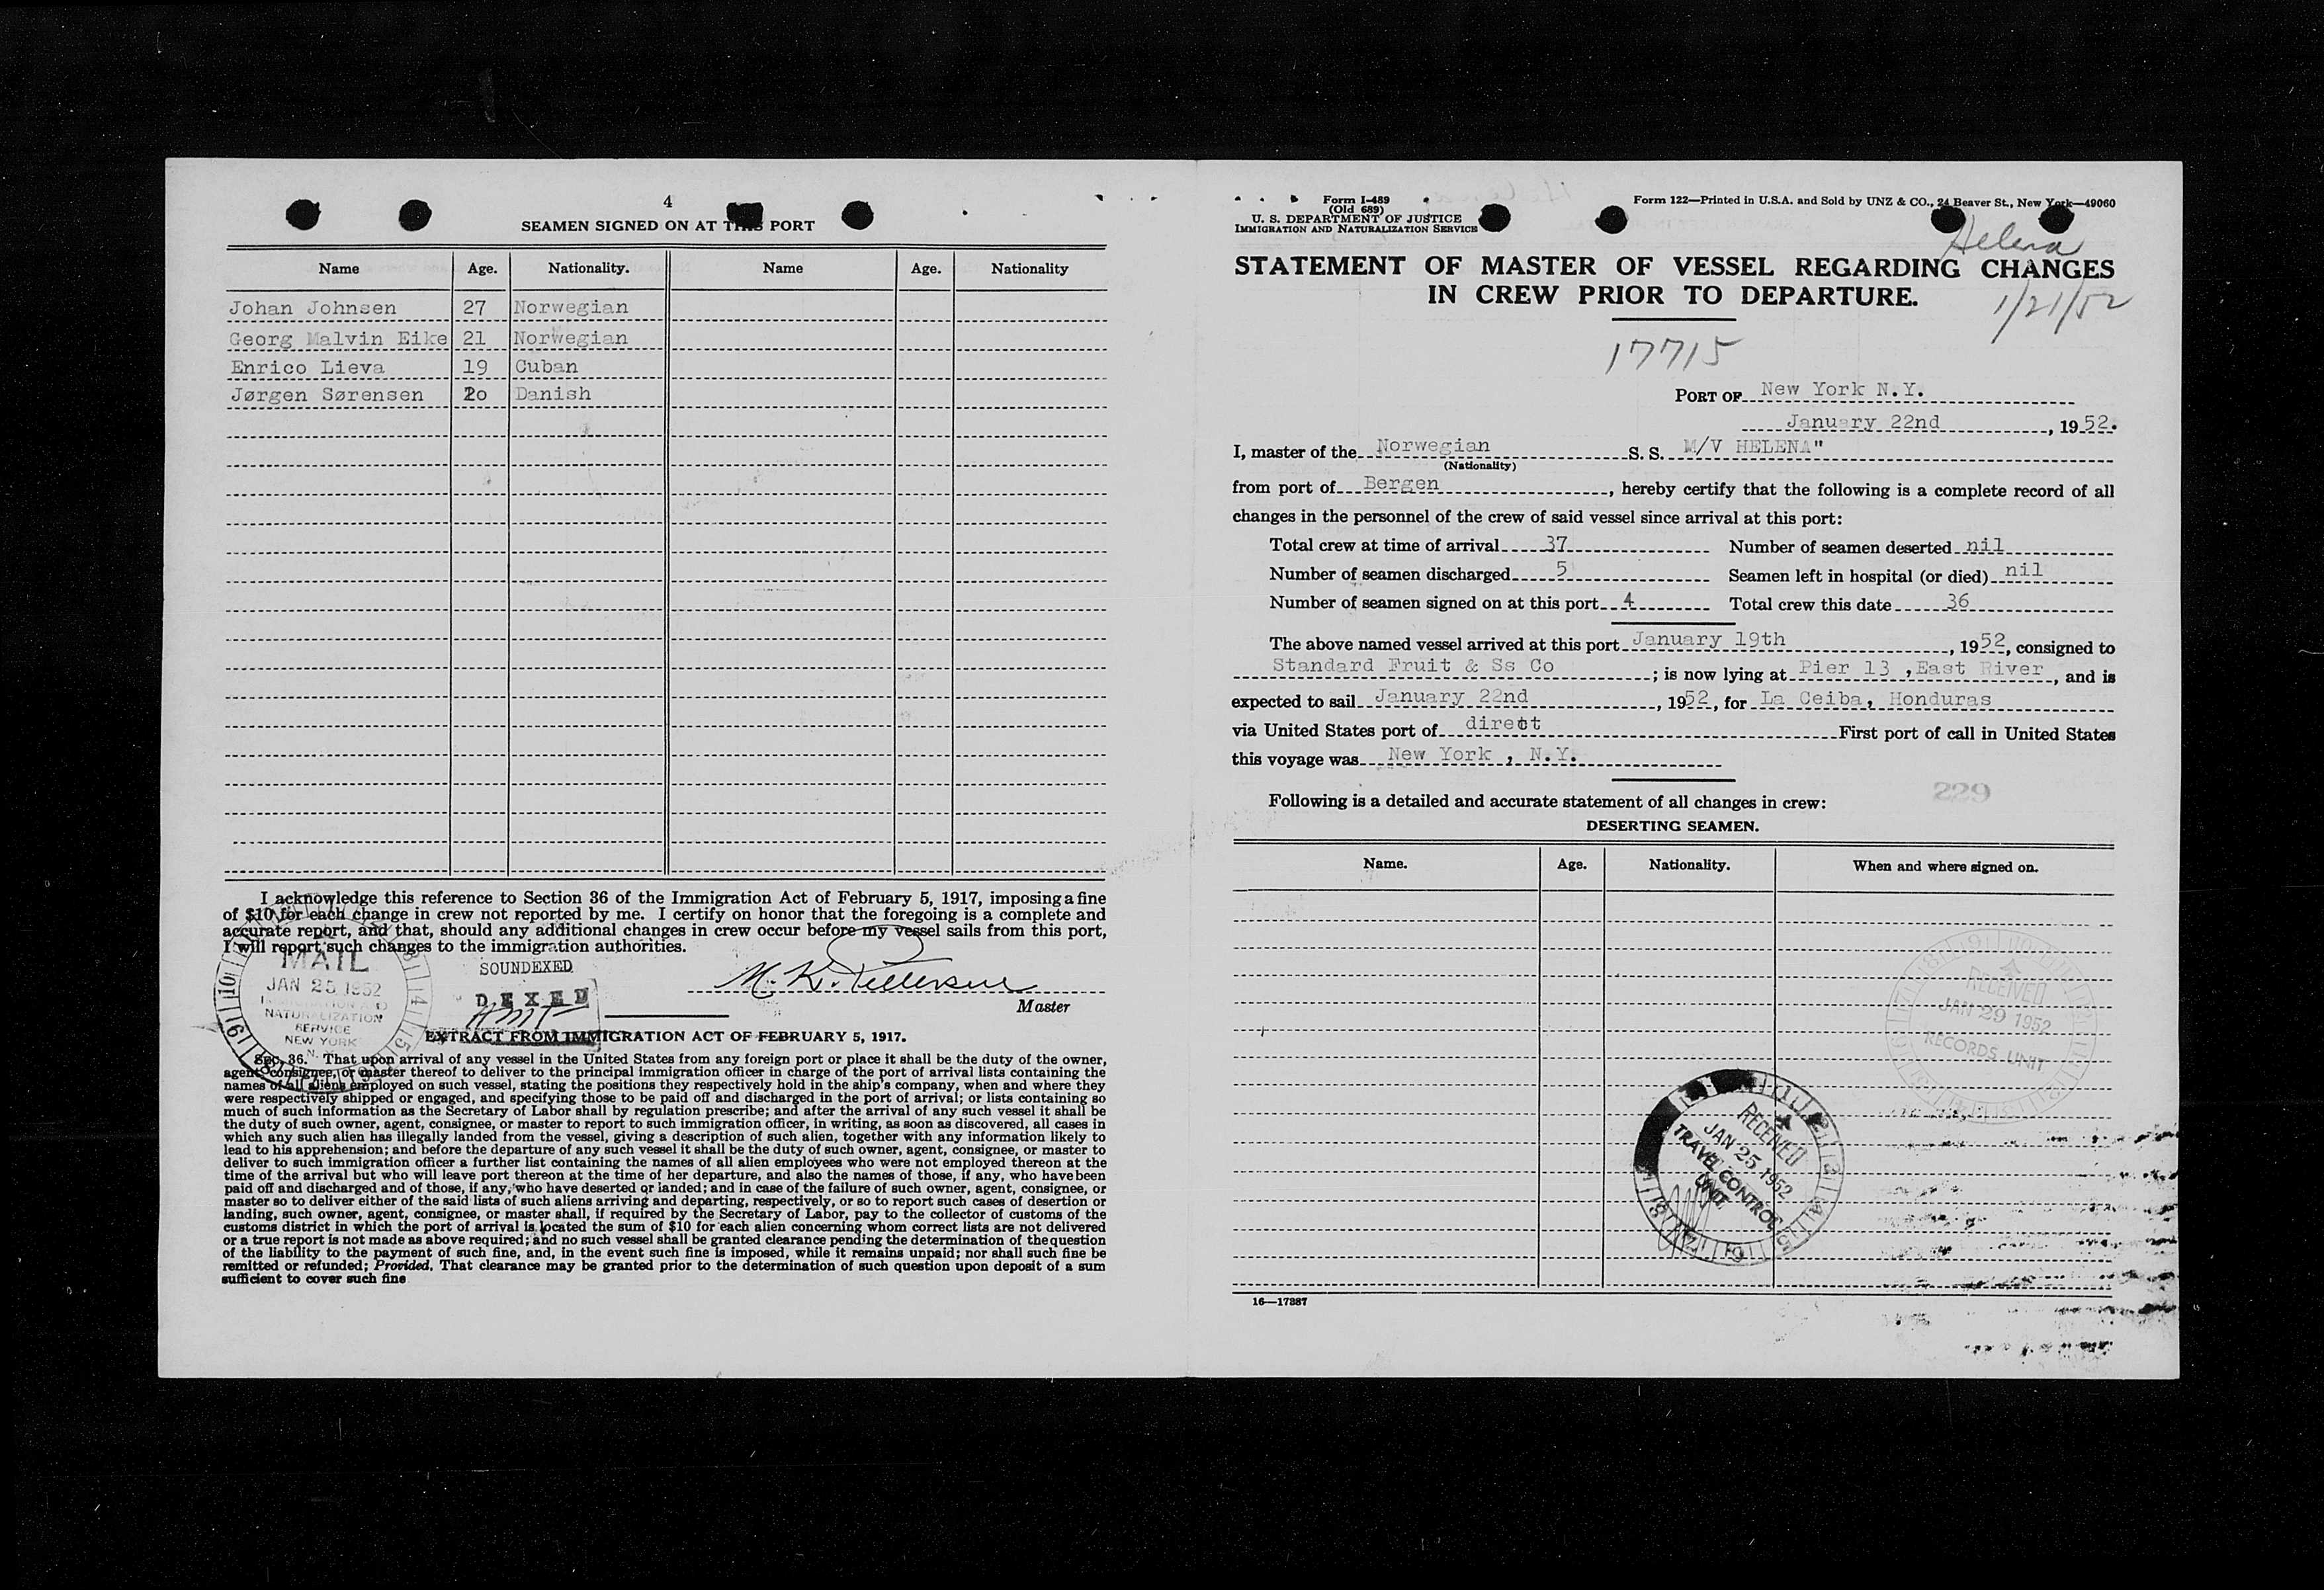 4
SEAMEN SIGNED ON AT THIS PORT
Name Age. Nationality. Name Age. Nationality
Johan Johnsen 27 Norwegian
Georg Malvin Eike 21 Norwegian
Enrico Lieva 19 Cuban
Jørgen Sørensen 20 Danish
I acknowledge this reference to Section 36 of the Immigration Act of February 5, 1917, imposing a fine
of $10 for each change in crew not reported by me. I certify on honor that the foregoing is a complete and
accurate report, and that, should any additional changes in crew occur before my vessel sails from this port,
I will report such changes to the immigration authorities.
MAIL
JAN 25 1952
IMMIGRATION AND
NATURALIZATION
SERVICE
NEW YORK
N.
SOUNDEXED
DEXED
Master
EXTRACT FROM IMMIGRATION ACT OF FEBRUARY 5, 1917.
Sec. 36. That upon arrival of any vessel in the United States from any foreign port or place it shall be the duty of the owner,
agent, consignee, or master thereof to deliver to the principal immigration officer in charge of the port of arrival lists containing the
names of all aliens employed on such vessel, stating the positions they respectively hold in the ship's company, when and where they
were respectively shipped or engaged, and specifying those to be paid off and discharged in the port of arrival; or lists containing so
much of such information as the Secretary of Labor shall by regulation prescribe; and after the arrival of any such vessel it shall be
the duty of such owner, agent, consignee, or master to report to such immigration officer, in writing, as soon as discovered, all cases in
which any such alien has illegally landed from the vessel, giving a description of such alien, together with any information likely to
lead to his apprehension; and before the departure of any such vessel it shall be the duty of such owner, agent, consignee, or master to
deliver to such immigration officer a further list containing the names of all alien employees who were not employed thereon at the
time of the arrival but who will leave port thereon at the time of her departure, and also the names of those, if any, who have been
paid off and discharged and of those, if any, who have deserted or landed; and in case of the failure of such owner, agent, consignee, or
master so to deliver either of the said lists of such aliens arriving and departing, respectively, or so to report such cases of desertion or
landing, such owner, agent, consignee, or master shall, if required by the Secretary of Labor, pay to the collector of customs of the
customs district in which the port of arrival is located the sum of $10 for each alien concerning whom correct lists are not delivered
or a true report is not made as above required; and no such vessel shall be granted clearance pending the determination of the question
of the liability to the payment of such fine, and, in the event such fine is imposed, while it remains unpaid; nor shall such fine be
remitted or refunded; Provided, That clearance may be granted prior to the determination of such question upon deposit of a sum
sufficient to cover such fine
Form I-489
(Old 689)
U. S. DEPARTMENT OF JUSTICE
IMMIGRATION AND NATURALIZATION SERVICE
Form 122—Printed in U.S.A. and Sold by UNZ & CO., 24 Beaver St., New York—49060
Helena
STATEMENT OF MASTER OF VESSEL REGARDING CHANGES
IN CREW PRIOR TO DEPARTURE.
1/21/52
17715
PORT OF New York N.Y.
January 22nd, 1952.
I, master of the Norwegian S. S. M/V HELENA"
(Nationality)
from port of Bergen, hereby certify that the following is a complete record of all
changes in the personnel of the crew of said vessel since arrival at this port:
Total crew at time of arrival 37 Number of seamen deserted nil
Number of seamen discharged 5 Seamen left in hospital (or died) nil
Number of seamen signed on at this port 4 Total crew this date 36
The above named vessel arrived at this port January 19th, 1952, consigned to
Standard Fruit & Ss Co; is now lying at Pier 13 ,East River, and is
expected to sail January 22nd, 1952, for La Ceiba, Honduras
via United States port of direct First port of call in United States
this voyage was New York , N.Y.
229
Following is a detailed and accurate statement of all changes in crew:
DESERTING SEAMEN.
Name. Age. Nationality. When and where signed on.
RECEIVED
JAN 29 1952
RECORDS UNIT
RECEIVED
JAN 25 1952
TRAVEL CONTROL
UNIT
16—17387